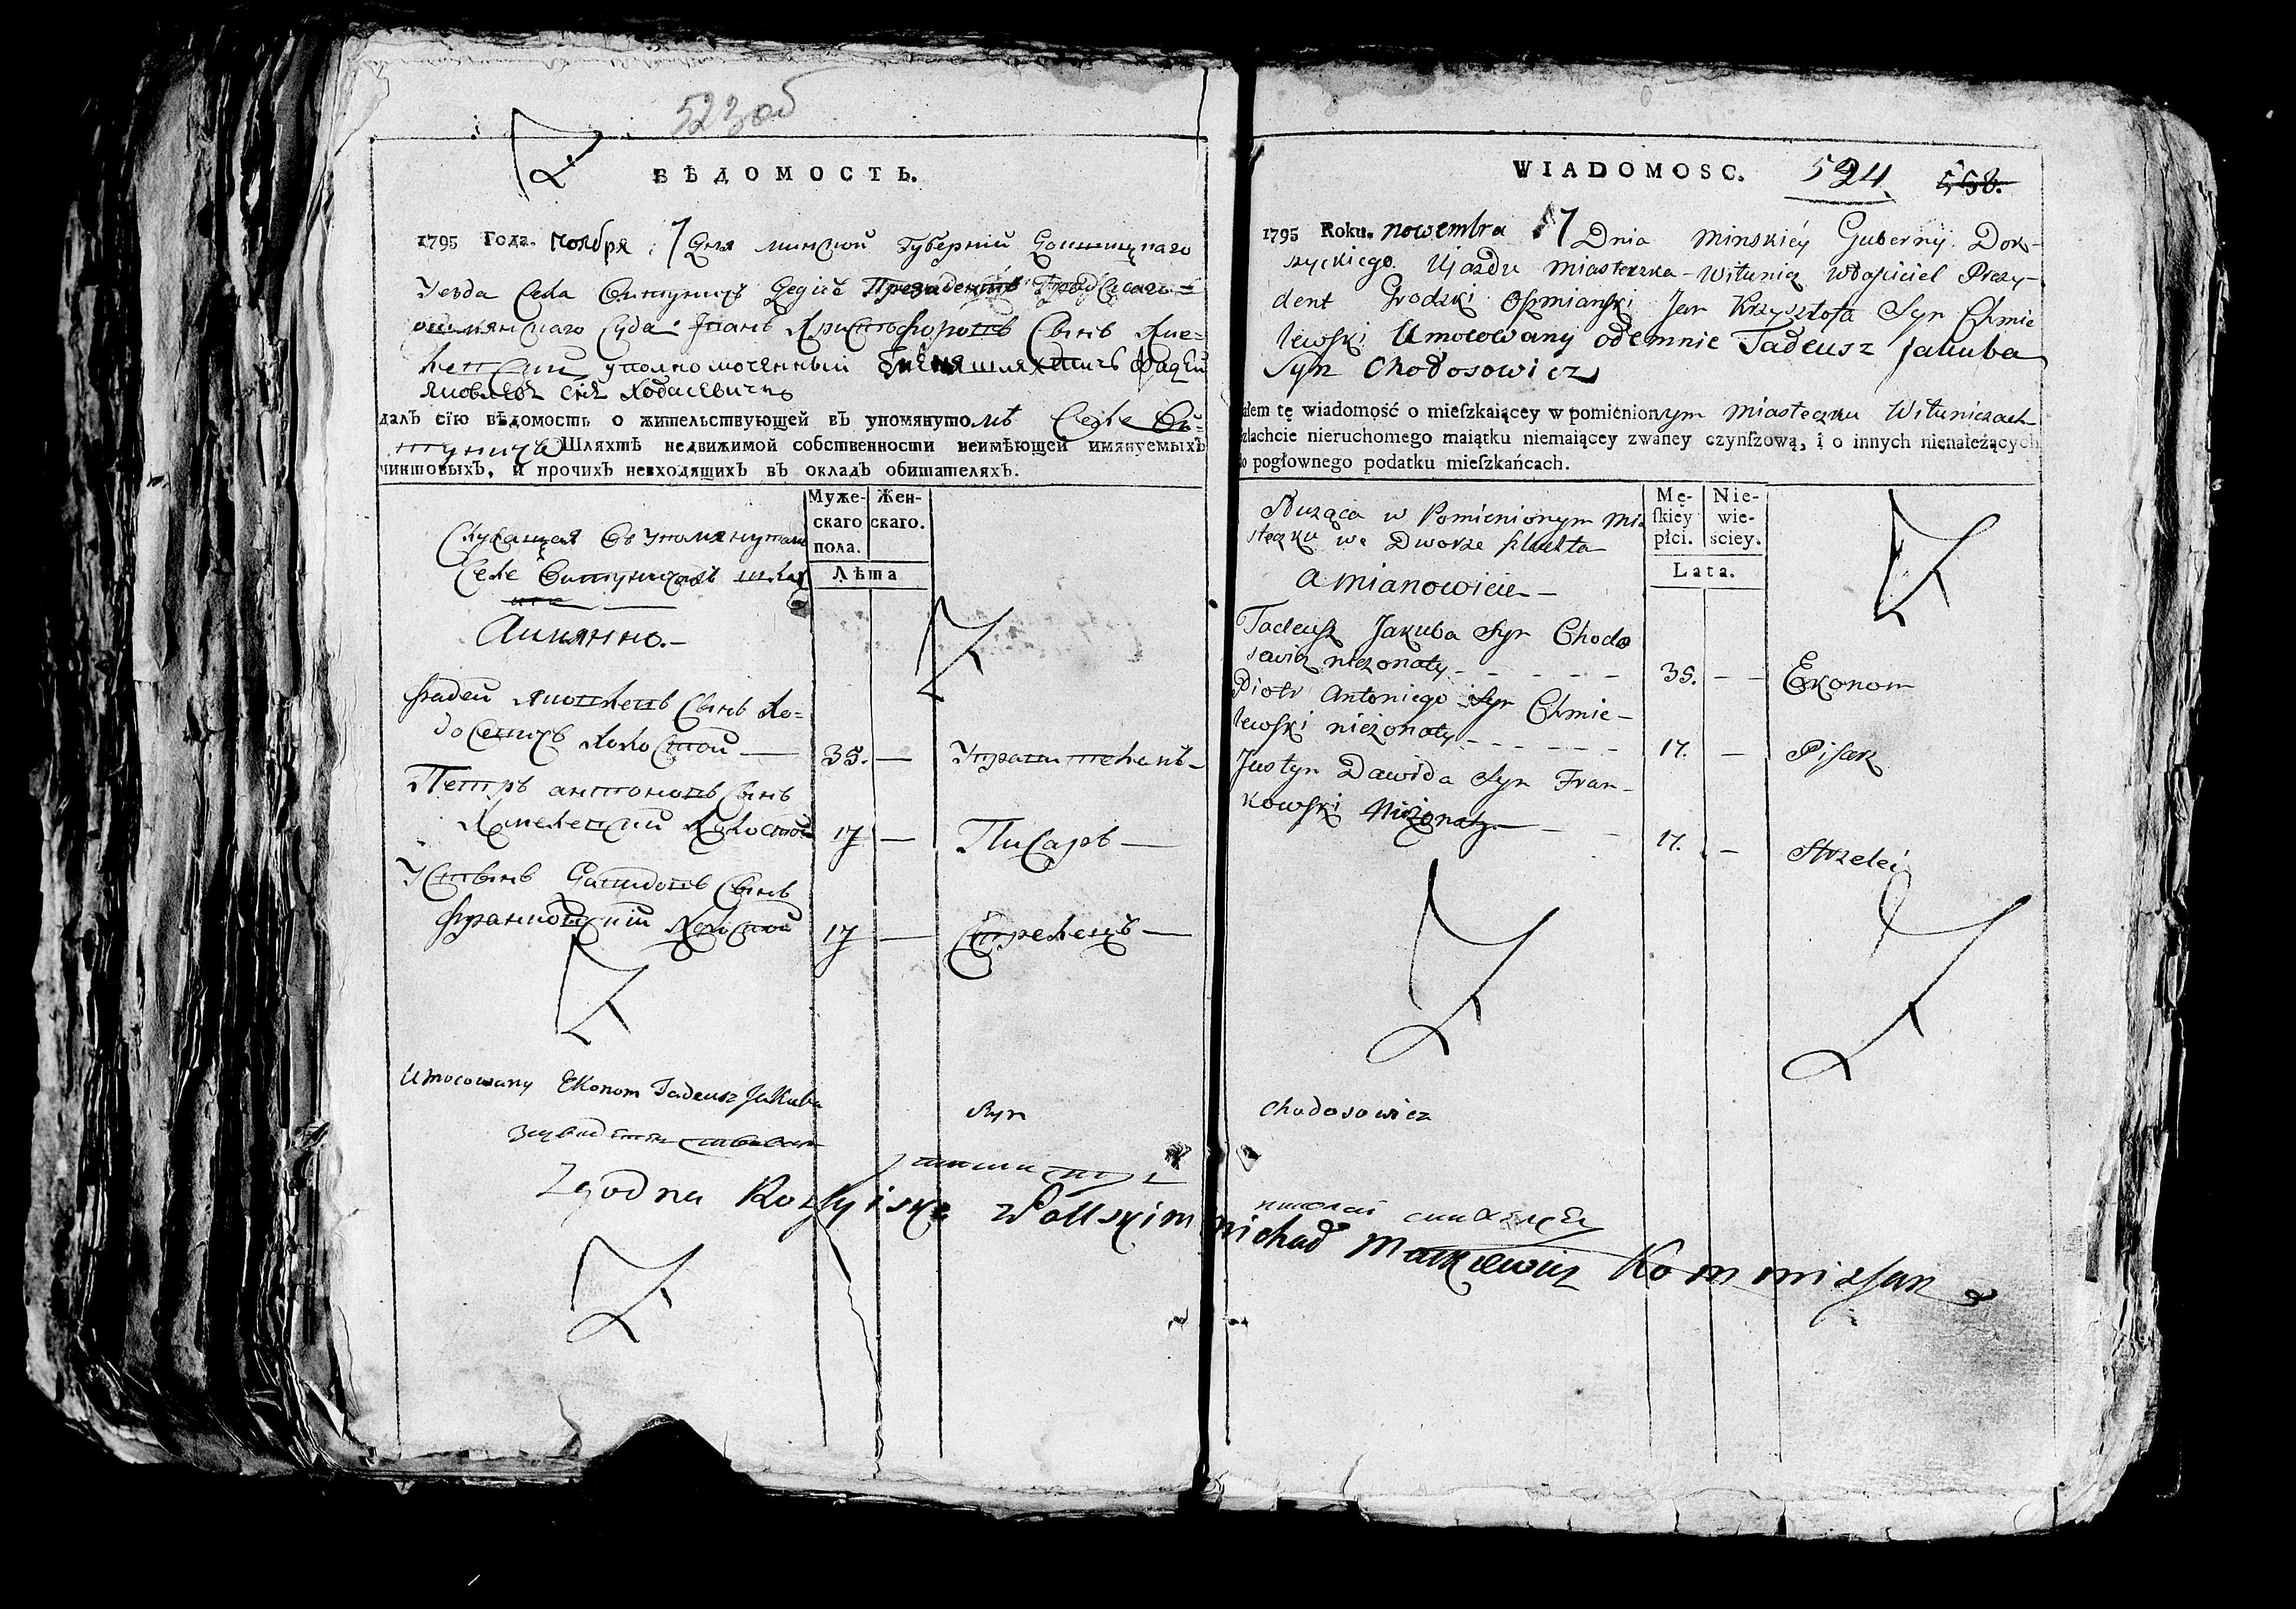 523об
ВѢДОМОСТЬ.
1795 Года. ноября 17 Дня минской Губерніи Докшицкаго
Уезда Села Витуничь
оШмянскаго Суда Іванъ Христофоровъ Сынъ Хме=
левский уполномоченный Фадей
Яковлевъ Снъ Ходасевичъ
далъ сїю вѣдомость о жительствующей въ упомянутомъ Селе Ви=
туниче Шляхтѣ недвижимой собственности неимѣющей имянуемыхъ
чиншовыхъ, и прочихъ невходящихъ въ окладъ обитателяхъ.
Муже-
скаго
пола.
Жен-
скаго.
Лѣта
Служащая в Упомянутом
Селе Витуничахъ шлях
Аимянно.-
Фадей Яковлевъ Сынъ Хо=
досевичъ Холостой — 35. — Управитель-
Петръ антоновъ Сынъ
Хмелевский Холостой 17 — Писарь —
Устынъ Давидовъ Сынъ
Франковский Холостой 17 — Стрелецъ —
Umocowany Ekonom Tadeusz Jakuba Syn Chodosowicz
Zgodna Rossyiską z Polskim Michał Markiewicz Kommissarz
WIADOMOSC. 524 558.
1795 Roku. nowembra 17 Dnia Minskiéy Guberny. Dok-
szyckiego Ujazdu Miasteczka Witunicz Właściciel Prezy-
dent Grodzki Oszmianski Jan Krzysztofa Syn Chmie
lewski Umocowany odemnie Tadeusz Jakuba
Syn Chodosowicz
ałem tę wiadomość o mieſzkaiącey w pomienionym Miasteczku Wituniczach
szlachcie nieruchomego maiątku niemaiącey zwaney czynſzową, i o innych nienależących
do pogłownego podatku mieſzkańcach.
Mę-
ſkiey
płci.
Nie-
wie-
sciey.
Lata.
Służąca w Pomienionym Mia
steczku we Dworze szlachta
a mianowicie —
Tadeusz Jakuba Syn Chodo
sowicz nieżonaty - - - - - 35. - - Ekonom
Piotr Antoniego Syn Chmie-
lewski nieżonaty - - - - - 17. — Pisarz
Justyn Dawida Syn Fran-
kowski Nieżonaty - - - 17. — Strzelec